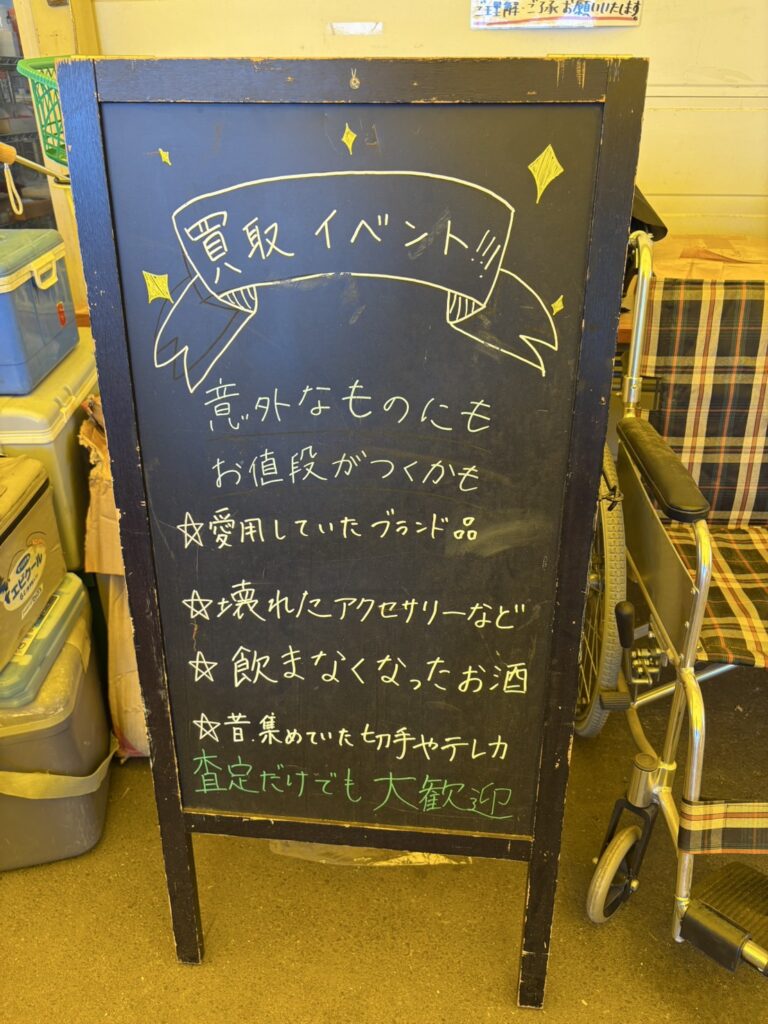 ご理解・ご了承お願いいたします
買取 イベント!!!
意外なものにも
お値段がつくかも
☆愛用していたブランド品
☆壊れたアクセサリーなど
☆飲まなくなったお酒
☆昔.集めていた切手やテレカ
査定だけでも大歓迎